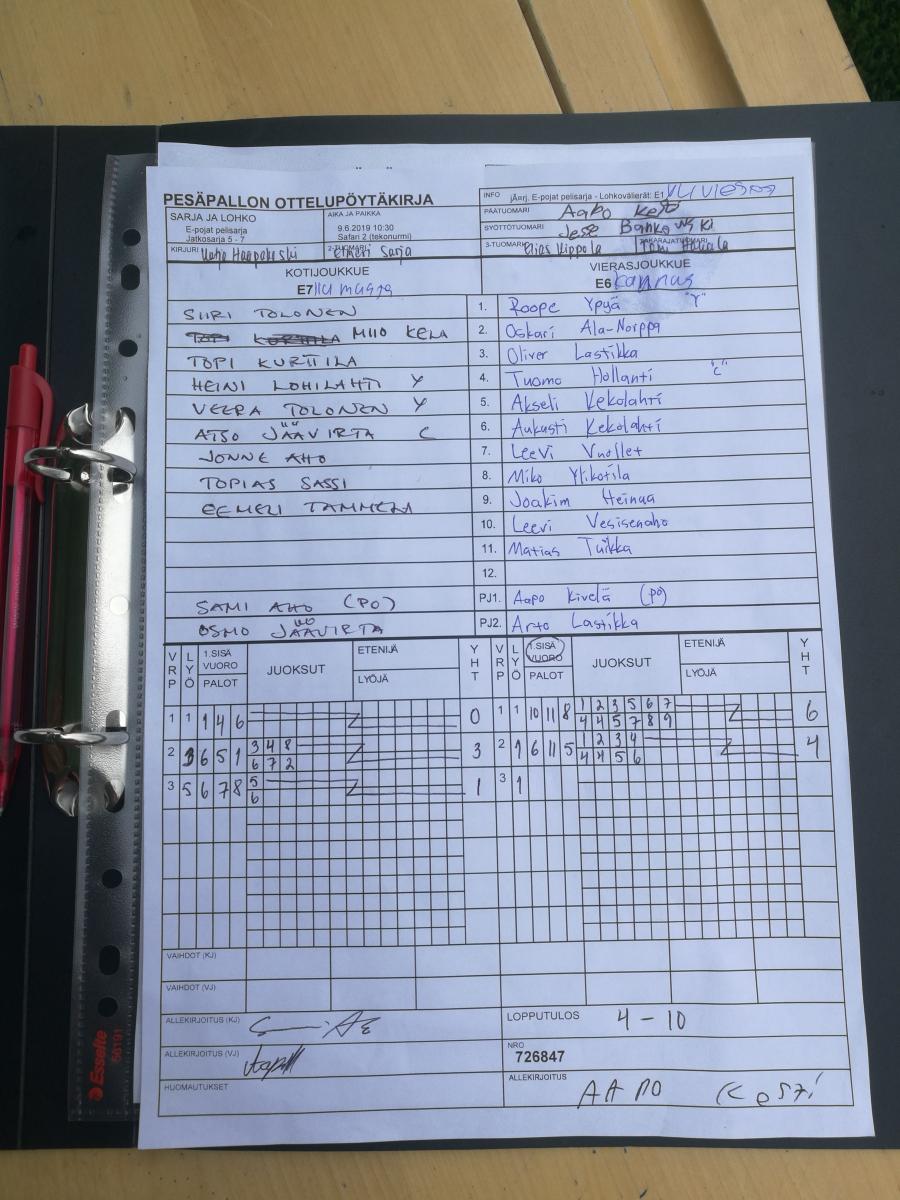 PESÄPALLON OTTELUPÖYTÄKIRJA
INFO jÄ¤rj. E-pojat pelisarja - Lohkovälierät: E1
SARJA JA LOHKO
E-pojat pelisarja
Jatkosarja 5 - 7
AIKA JA PAIKKA
9.6.2019 10:30
Safari 2 (tekonurmi)
PÄÄTUOMARI Aapo
SYÖTTÖTUOMARI Jesse
KIRJURI
2-TUOMARI Elmeri Sarja
3-TUOMARI Elias Vippola
TAKARAJATUOMARI
KOTIJOUKKUE
E7
VIERASJOUKKUE
E6 Kannus
SIIRI TOLONEN 1. Roope Ypyä "Y"
MIIO KELA 2. Oskari Ala-Norppa
TOPI KURTTILA 3. Oliver Lastikka
HEINI LOHILAHTI Y 4. Tuomo Hollanti "C"
VEERA TOLONEN Y 5. Akseli Kekolahti
ATSO JÄÄVIRTA C 6. Aukusti Kekolahti
JONNE AHO 7. Leevi Vuollet
TOPIAS SASSI 8. Miko Ylikotila
EEMELI TAMMELA 9. Joakim Heinua
10. Leevi Vesisenaho
11. Matias Tuikka
12.
SAMI AHO (PO) PJ1. Aapo Kivelä (PO)
OSMO JÄÄVIRTA PJ2. Arto Lastikka
VRP LYÖ 1.SISÄ VUORO PALOT JUOKSUT ETENIJÄ LYÖJÄ YHT VRP LYÖ 1.SISÄ VUORO PALOT JUOKSUT ETENIJÄ LYÖJÄ YHT
1 1 1 4 6 0 1 1 10 11 8 1 2 3 5 6 7 6
4 4 5 7 8 9
2 3 6 5 1 3 4 8 3 2 9 6 11 5 1 2 3 4 4
6 7 2 4 4 5 6
3 5 6 7 8 5 1 3 1
6
VAIHDOT (KJ)
VAIHDOT (VJ)
ALLEKIRJOITUS (KJ)
LOPPUTULOS 4 - 10
ALLEKIRJOITUS (VJ)
NRO
726847
HUOMAUTUKSET
ALLEKIRJOITUS AAPO
Esselte
56191